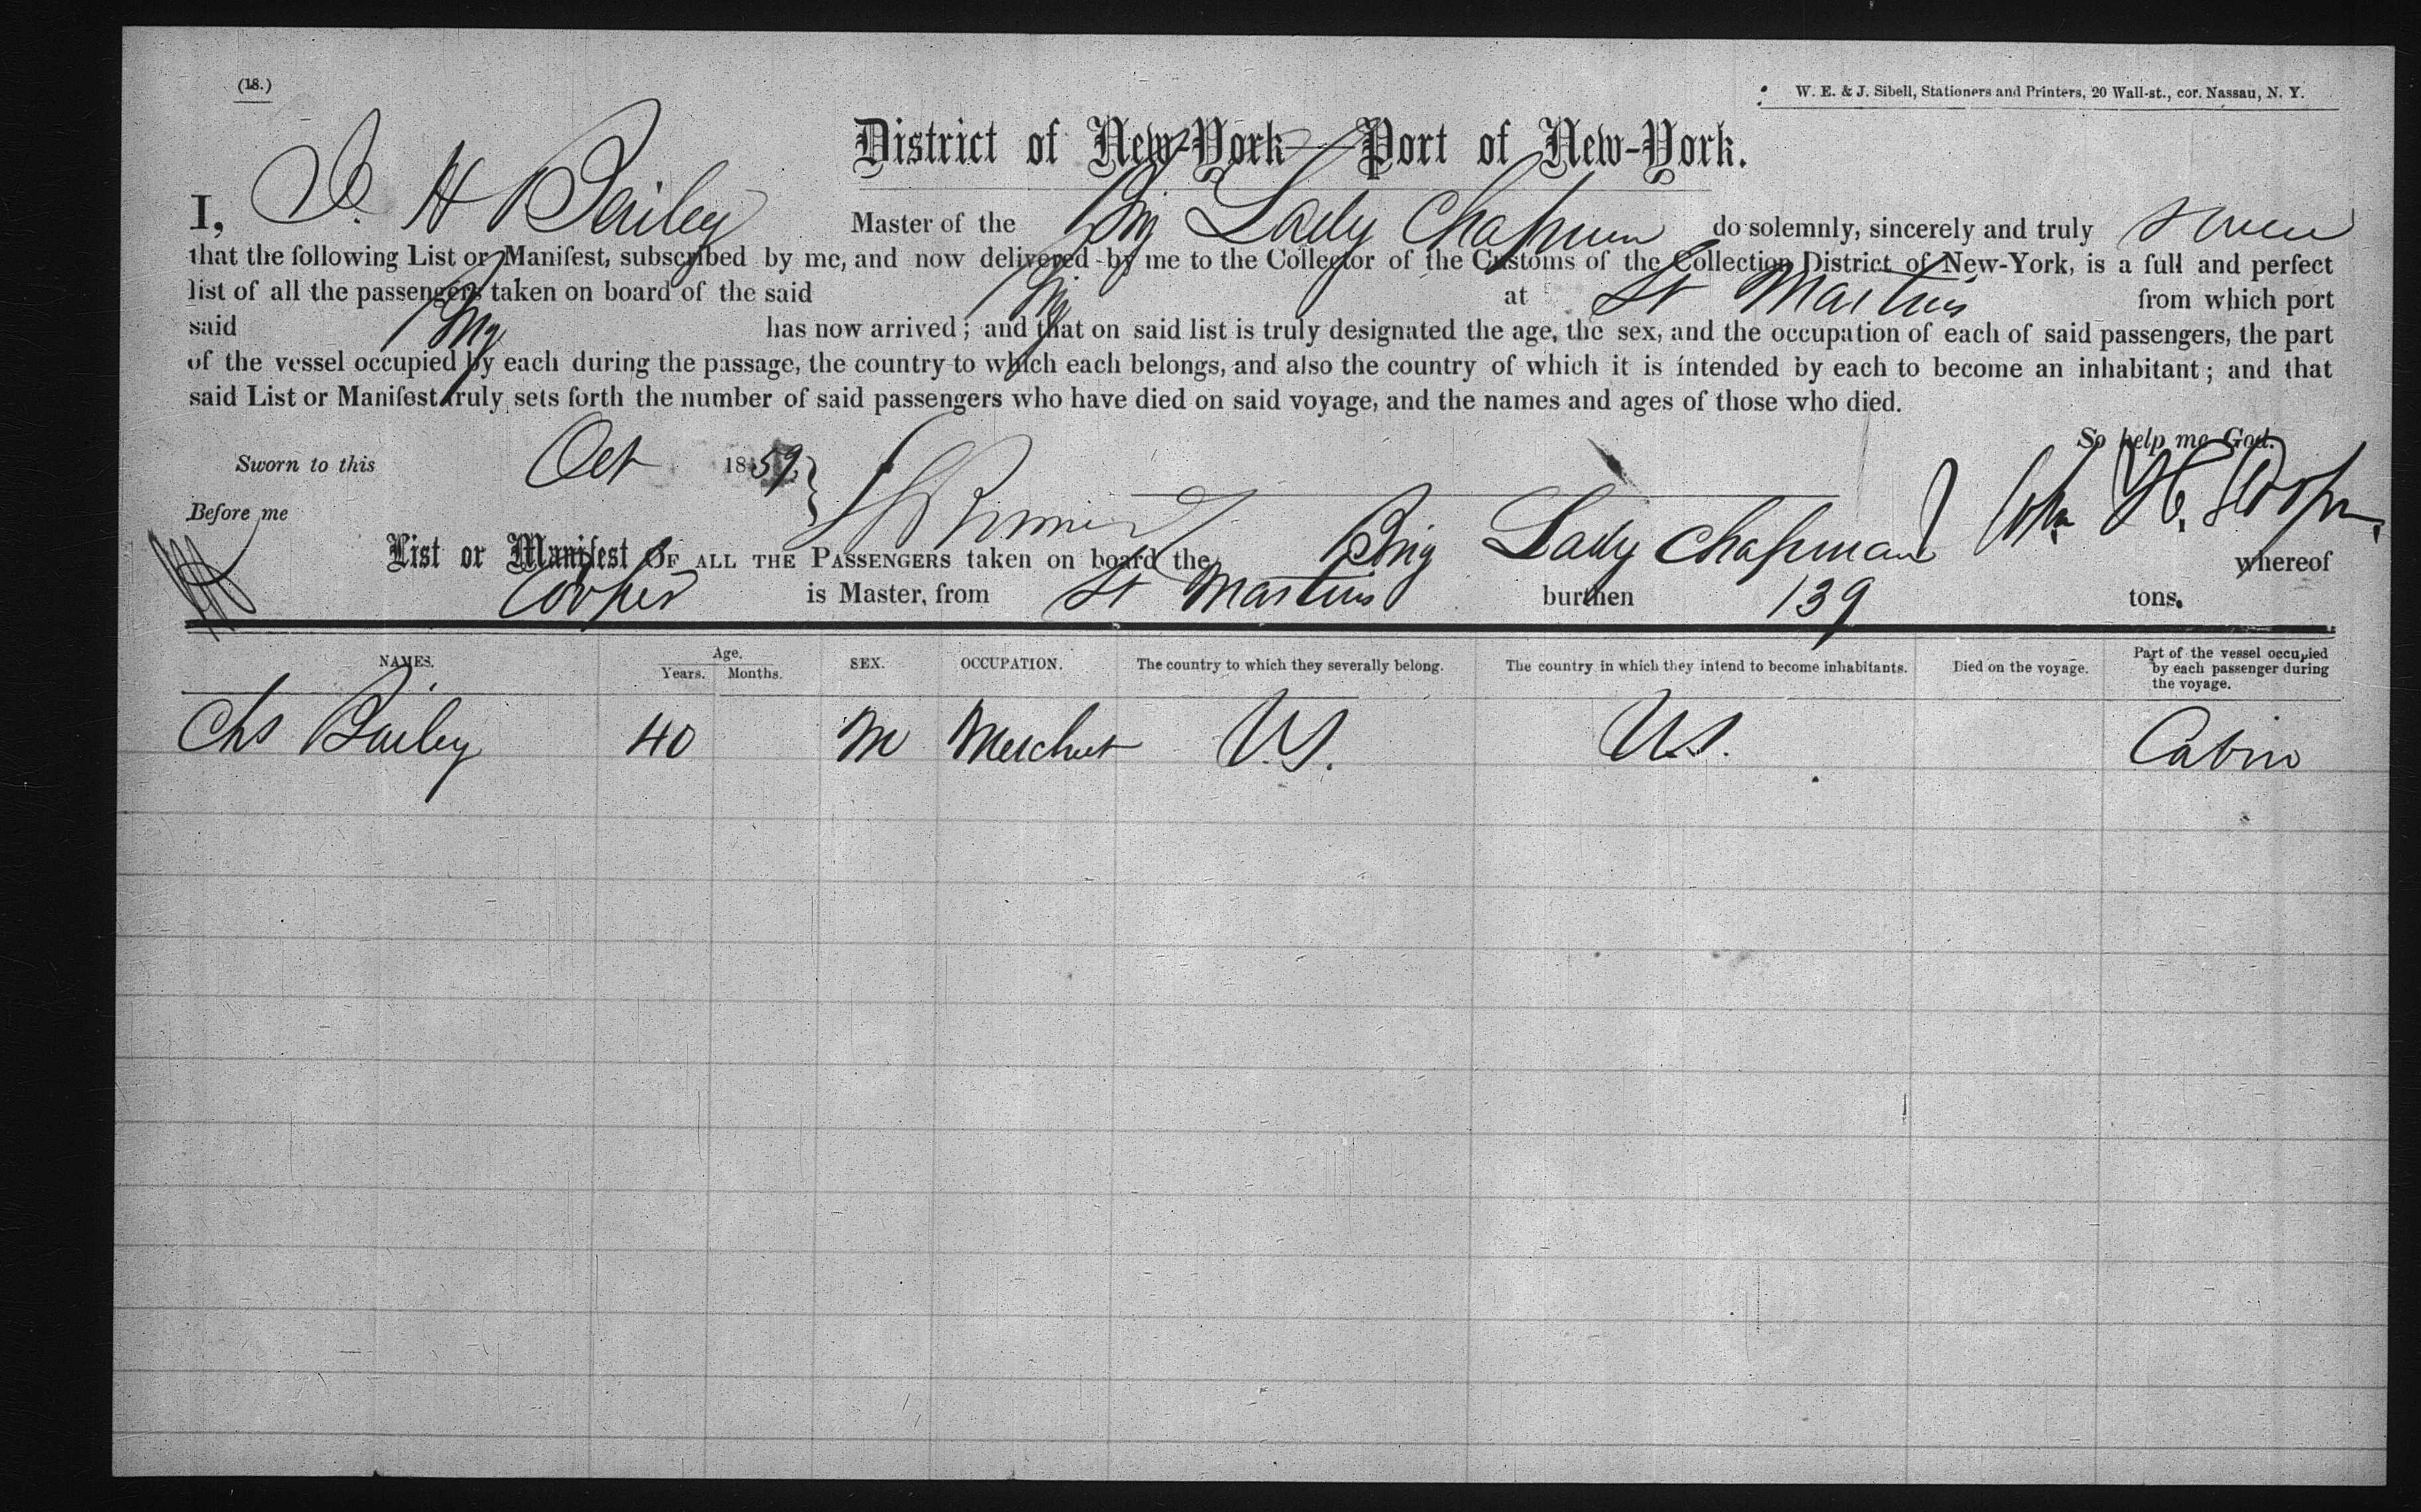 (18.)
W. E. & J. Sibell, Stationers and Printers, 20 Wall-st., cor. Nassau, N. Y.
District of New-York—Port of New-York.
I, H Bailey Master of the Brig Lady Chapman do solemnly, sincerely and truly swear
that the following List or Manifest, subscribed by me, and now delivered by me to the Collector of the Customs of the Collection District of New-York, is a full and perfect
list of all the passengers taken on board of the said Brig at St Martins from which port
said Brig has now arrived; and that on said list is truly designated the age, the sex, and the occupation of each of said passengers, the part
of the vessel occupied by each during the passage, the country to which each belongs, and also the country of which it is intended by each to become an inhabitant; and that
said List or Manifest truly sets forth the number of said passengers who have died on said voyage, and the names and ages of those who died.
So help me God.
Sworn to this Oct 1859
Before me
List or Manifest OF ALL THE PASSENGERS taken on board the Brig Lady Chapman whereof
Cooper is Master, from St Martins burthen 139 tons.
NAMES. Age. Years. Months. SEX. OCCUPATION. The country to which they severally belong. The country in which they intend to become inhabitants. Died on the voyage. Part of the vessel occupied by each passenger during the voyage.
Chs Bailey 40 M Merchut U.S. U.S. Cabin